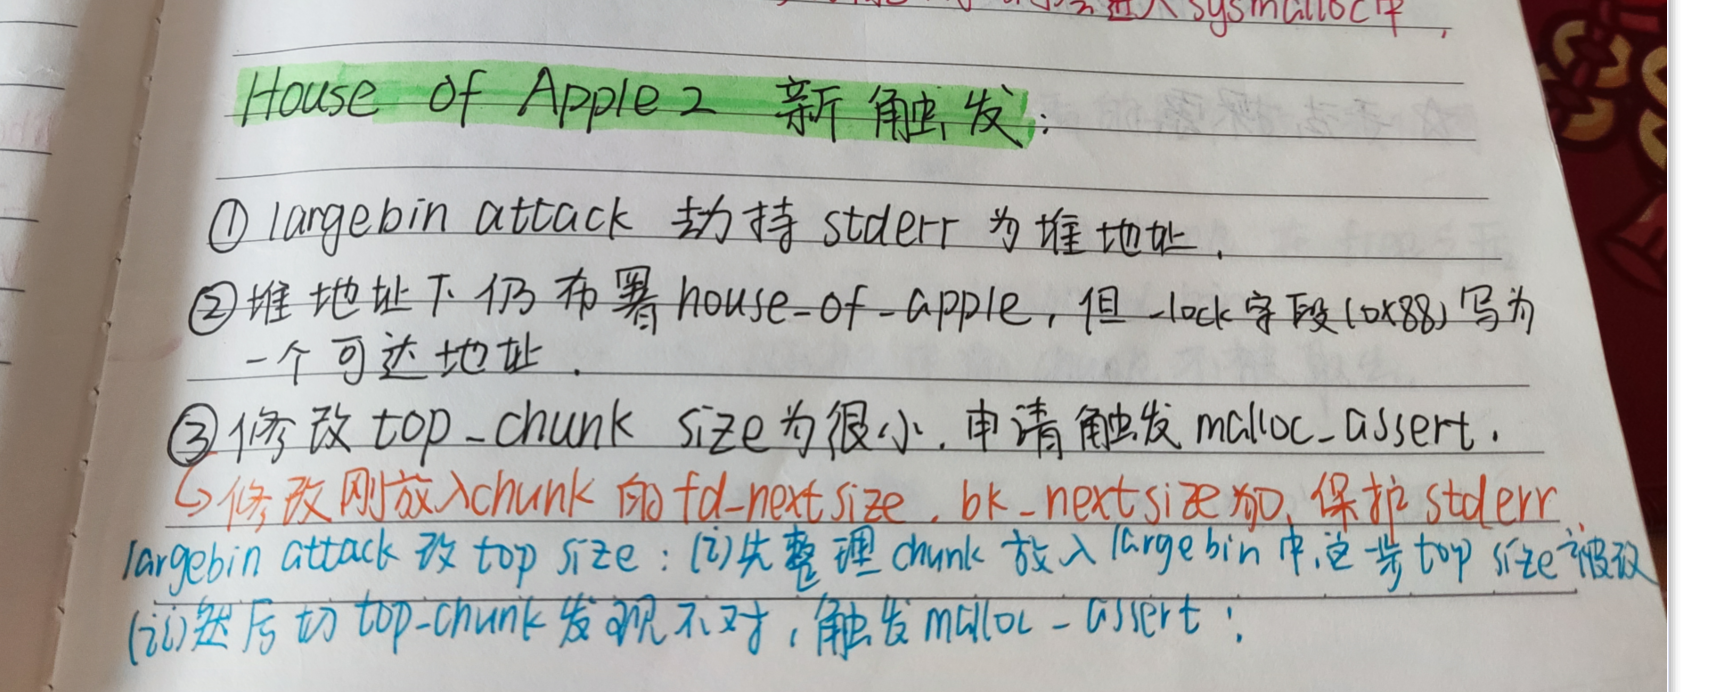 进入sysmalloc中,
House of Apple 2 新触发:
① largebin attack 劫持 stderr 为堆地址.
② 堆地址下仍布署house_of_apple, 但_lock字段(0x88)写为
一个可达地址.
③ 修改top_chunk size为很小. 申请触发malloc_assert.
↳修改刚放入chunk的fd_nextsize. bk_nextsize为0, 保护stderr
largebin attack 改 top size: (i)先整理chunk放入largebin中,这一步top size被改
(ii)然后切top_chunk发现不对, 触发malloc_assert;